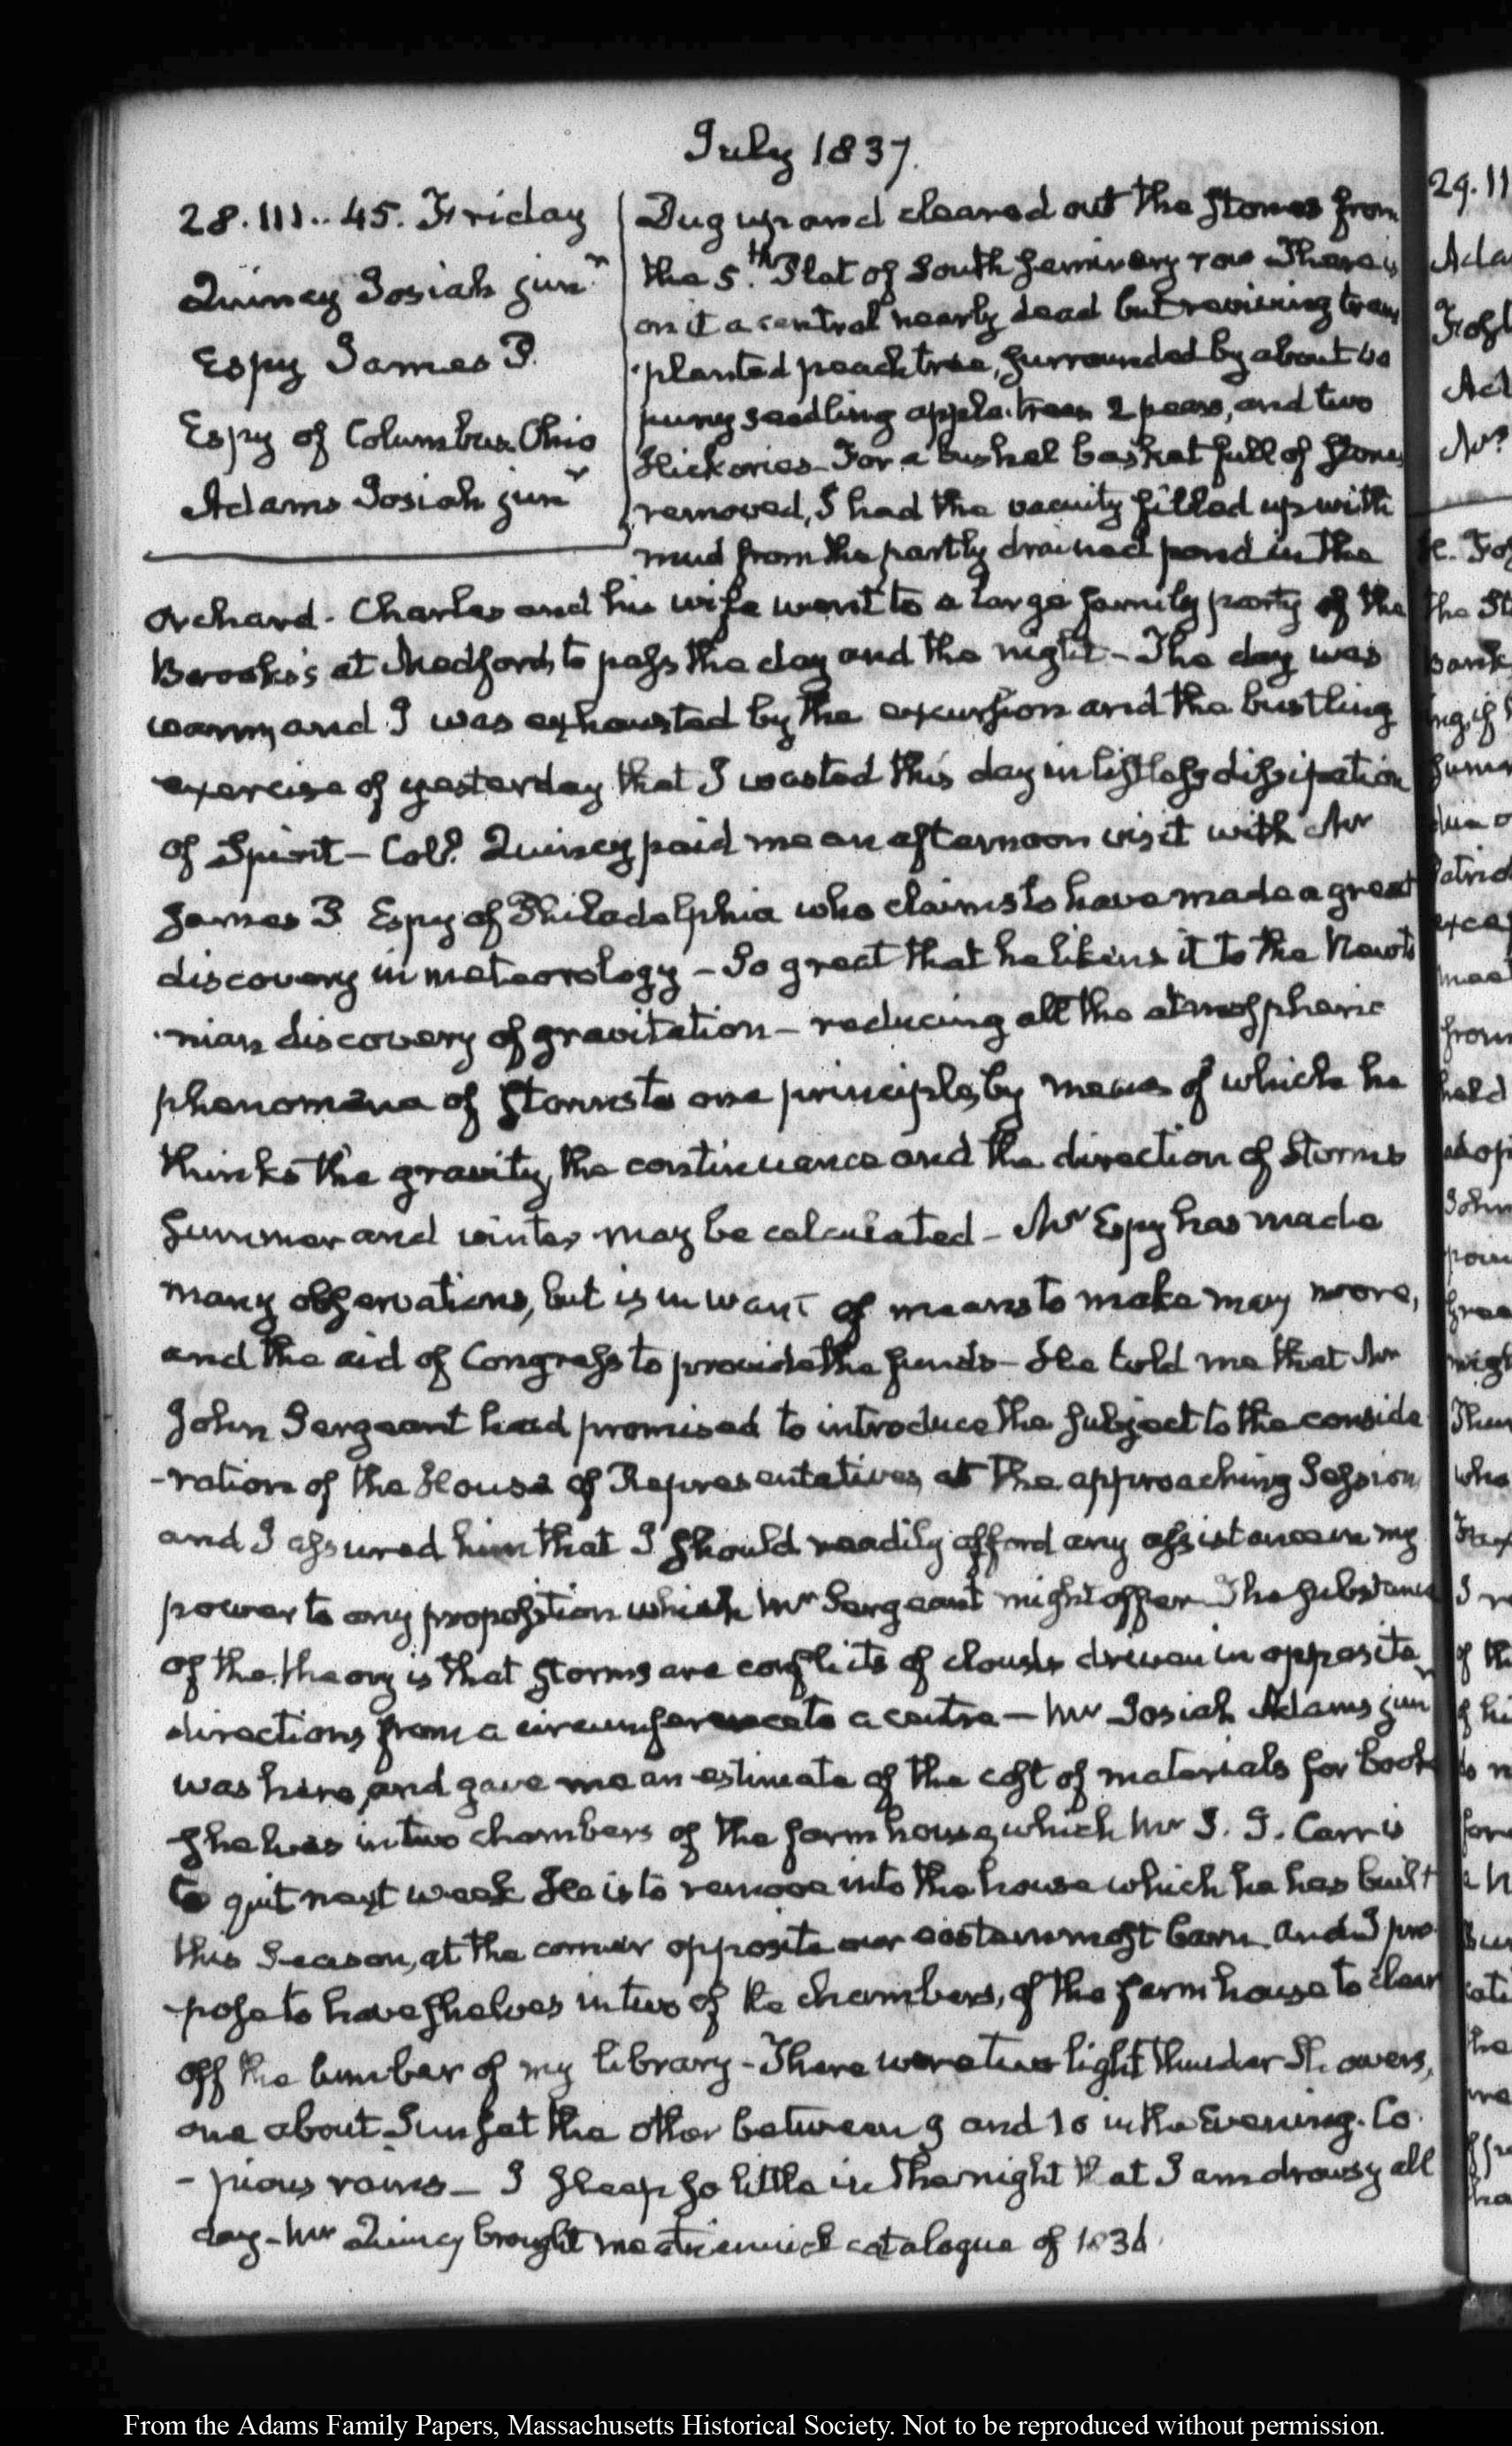 July 1837.
28. III.. 45. Friday
Quincy Josiah junr
Espy James P.
Espy of Columbus. Ohio
Adams Josiah junr
Dug up and cleared out the stones from
the 5.th Plat of South Seminary row There is
on it a central nearly dead but reviving trans
-planted peach tree, surrounded by about
puny seedling apple-trees 2 pears, and two
Hickories - For a bushel basket full of stones
removed, I had the vacuity filled up with
mud from the partly drained pond in the
orchard. Charles and his wife went to a large family party of the
Brooks's at Medford, to pass the day and the night - The day was
warm, and I was exhausted by the excursion and the bustling
exercise of yesterday that I wasted this day in listless dissipation
of Spirit - Coll. Quincy paid me an afternoon visit with Mr
James P Espy of Philadelphia who claims to have made a great
discovery in meteorology - So great that he likens it to the Newto
-nian discovery of gravitation - reducing all the atmospheric
phenomena of storms to one principle, by means of which he
thinks the gravity, the continuance and the direction of Storms
summer and winter may be calculated - Mr Espy has made
many observations, but is in want of means to make many more,
and the aid of Congress to provide the funds - He told me that Mr
John Sergeant had promised to introduce the subject to the conside
-ration of the House of Representatives, at the approaching Session
and I assured him that I should readily afford any assistance in my
power to any proposition which Mr Sergeant might offer - The substance
of the theory is that storms are conflicts of clouds driven in opposite
directions from a circumference to a centre - Mr Josiah Adams junr
was here, and gave me an estimate of the cost of materials for book
shelves in two chambers of the farm house, which Mr J. J. Carr is
to quit next week He is to remove into the house which he has built
this Season, at the corner opposite our easternmost barn and I pro-
-pose to have shelves in two of the chambers, of the farm house to clear
off the lumber of my library - There were two light thunder Showers,
one about Sunset the other between 9 and 10 in the Evening. Co
-pious rains - I sleep so little in the night that I am drowsy all
day - Mr Quincy brought me a catalogue of 1836.
29. III
From the Adams Family Papers, Massachusetts Historical Society. Not to be reproduced without permission.